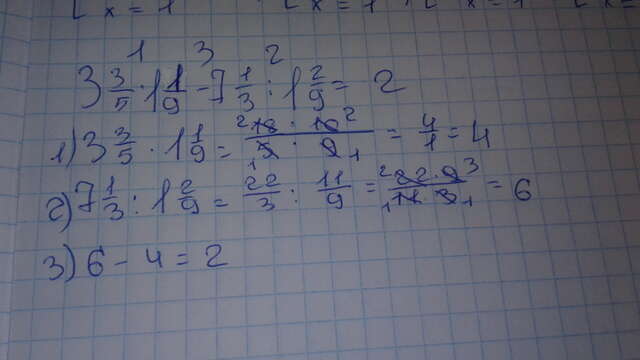 [ x = 1 [ x = 1 [ x = 1 [ x =
1 3 2
3 3/5 · 1 1/9 - 7 1/3 : 1 2/9 = 2
1) 3 3/5 · 1 1/9 = 18 · 10 / 5 · 9 = 4/1 = 4
2) 7 1/3 : 1 2/9 = 22/3 : 11/9 = 22 · 9 / 11 · 3 = 6
3) 6 - 4 = 2